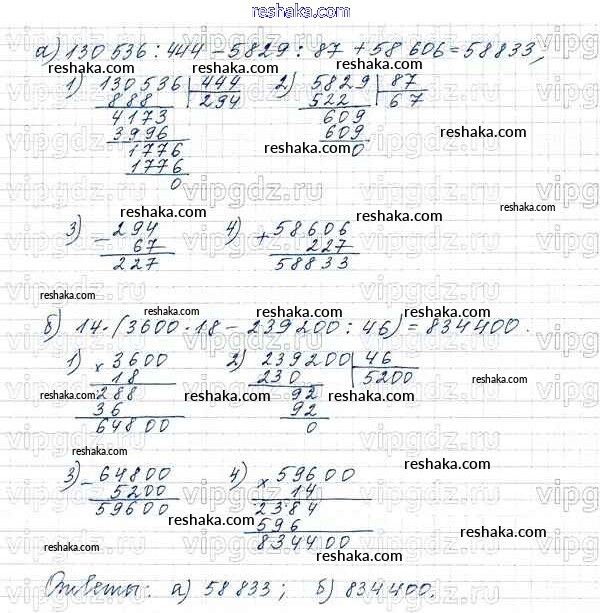 reshaka.com
а) 130 536 : 444 – 5829 : 87 + 58 606 = 58833,
reshaka.com reshaka.com reshaka.com
1) 130536 | 444 2) 5829 | 87
888 294 522 67
4173 609
3996 609
1776 0
1776
0
reshaka.com reshaka.com
reshaka.com reshaka.com
3) – 294 4) + 58606
67 227
227 58833
reshaka.com reshaka.com reshaka.com
б) 14 · (3600 · 18 – 239200 : 46) = 834400.
reshaka.com reshaka.com
1) × 3600 2) 239200 | 46
18 230 5200
288 92
36 92
64800 0
reshaka.com reshaka.com reshaka.com reshaka.com
3) – 64800 4) × 59600
5200 14
59600 2384
596
834400
reshaka.com reshaka.com reshaka.com
reshaka.com reshaka.com reshaka.com
Ответы: а) 58 833; б) 834 400.
vipgdz.ru